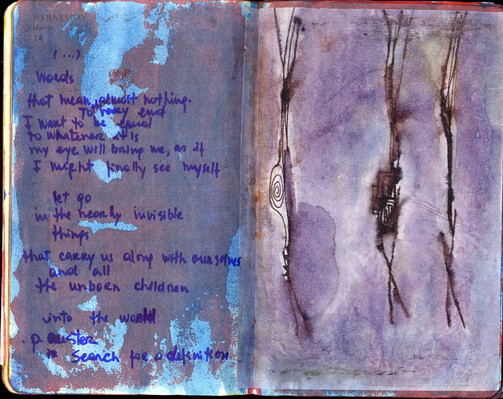 WEDNESDAY
March
14
(...)
Words
that mean almost nothing.
To very end
I want to be equal
to whatever it is
my eye will bring me, as if
I might finally see myself
let go
in the nearly invisible
things
that carry us along with ourselves
and all
the unborn children
into the world
p. auster
in Search for a definition